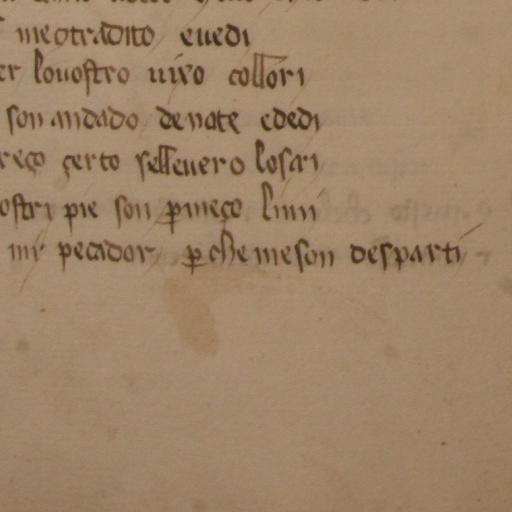 megtradito evedi
er lovostro viro collori
son andado denote ededi
rego çerto sellevero losai
ostri pie son ꝑmeço linii
mi pecador ꝑche meson desparti